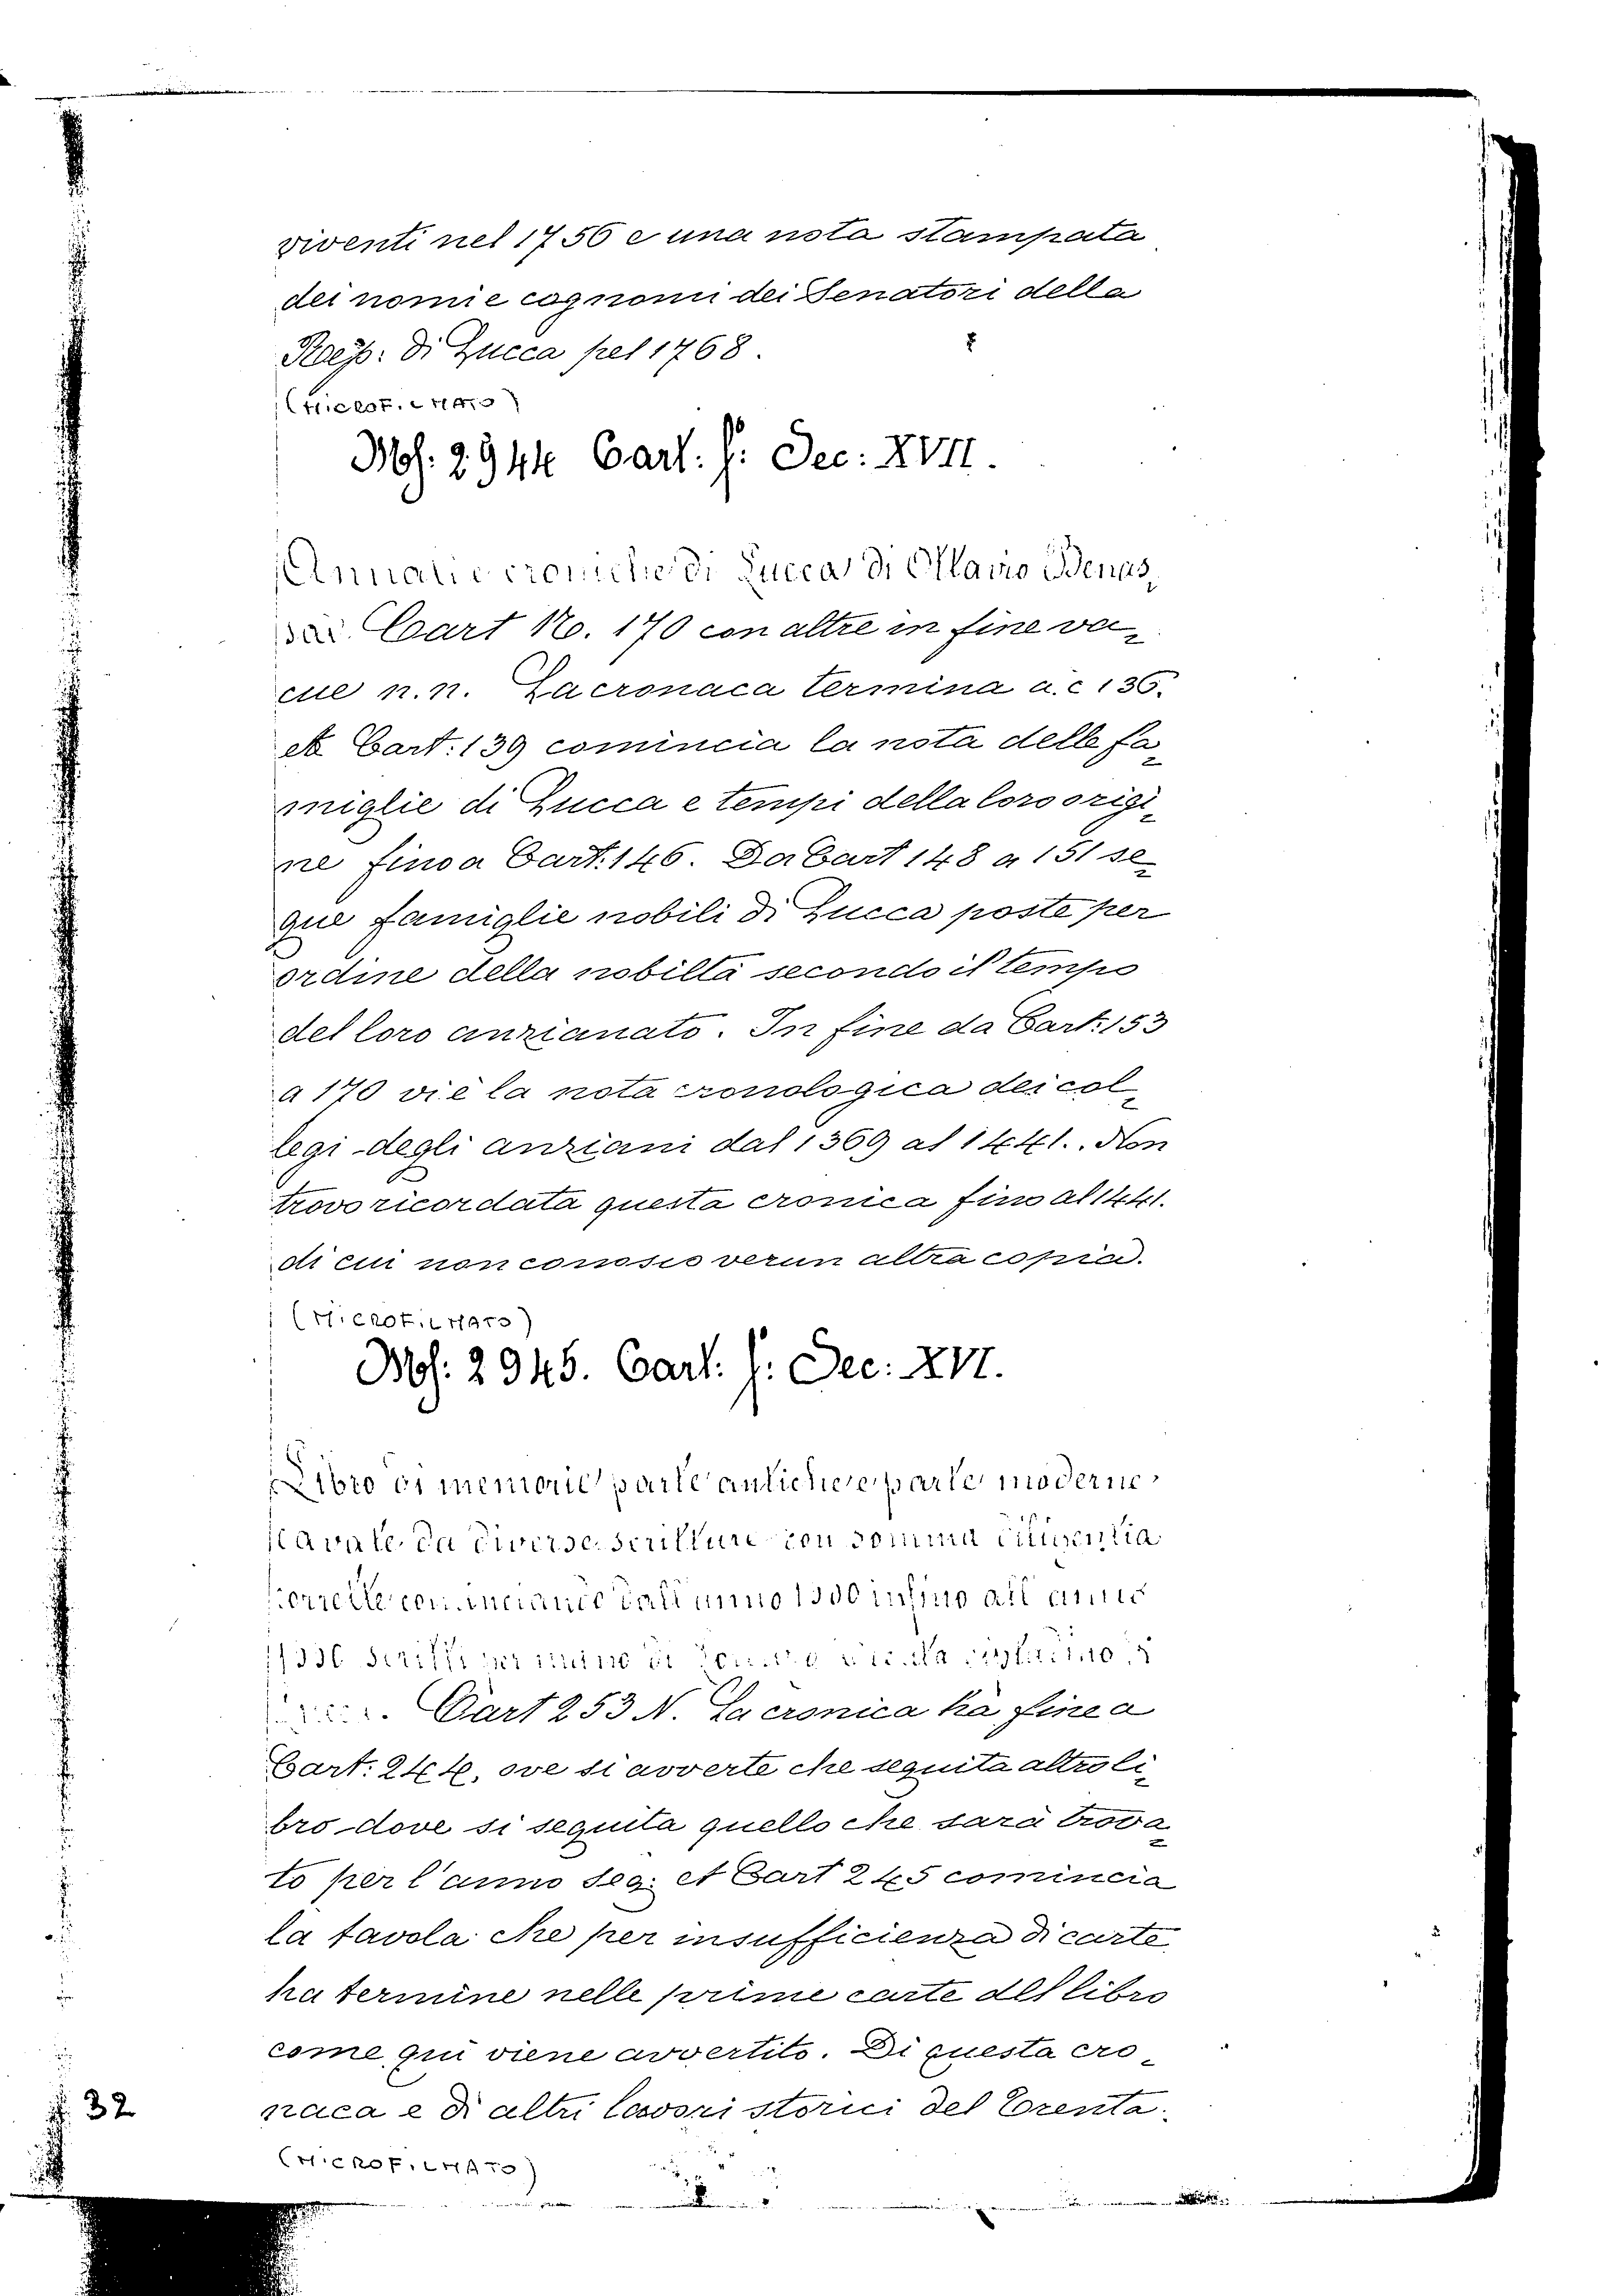 viventi nel 1756 e una nota stampata
dei nomi e cognomi dei Senatori della
Rep: di Lucca pel 1768.
(MICROFILMATO)
Ms. 2944 Cart. f. Sec: XVII.
Annali e croniche di Lucca di Mario Benas,
sai. Cart No. 170 con altre in fine va-
cue n.n. La cronaca termina a. c 136.
A Cart: 139 comincia la nota delle fa-
miglie di Lucca e tempi della loro origi-
ne fino a Cart. 146. Da Cart 148 a 151 se-
gue famiglie nobili di Lucca poste per
ordine della nobiltà secondo il tempo
del loro anzianato. In fine da Cart: 153
a 170 vi è la nota cronologica dei col-
legi degli anziani dal 1369 al 1441. Non
trovo ricordata questa cronica fino al 1441.
di cui non conosco verun altra copia.
(MICROFILMATO)
Ms. 2945. Cart. f: Sec: XVI.
Libro di memorie parte antiche e parte moderne
cavate da diverse scritture con somma diligentia
corrette cominciando dall anno 1300 insino all anno
1336 scritti per mano di
Cart 253 N. La cronica ha fine a
Cart: 244, ove si avverte che seguita altro li-
bro dove si seguita quello che sarà trova-
to per l'anno seg: et Cart 245 comincia
la tavola che per insufficienza di carte
ha termine nelle prime carte del libro
come qui viene avvertito. Di questa cro-
naca e di altri lavori storici del Trenta.
(MICROFILMATO)
32